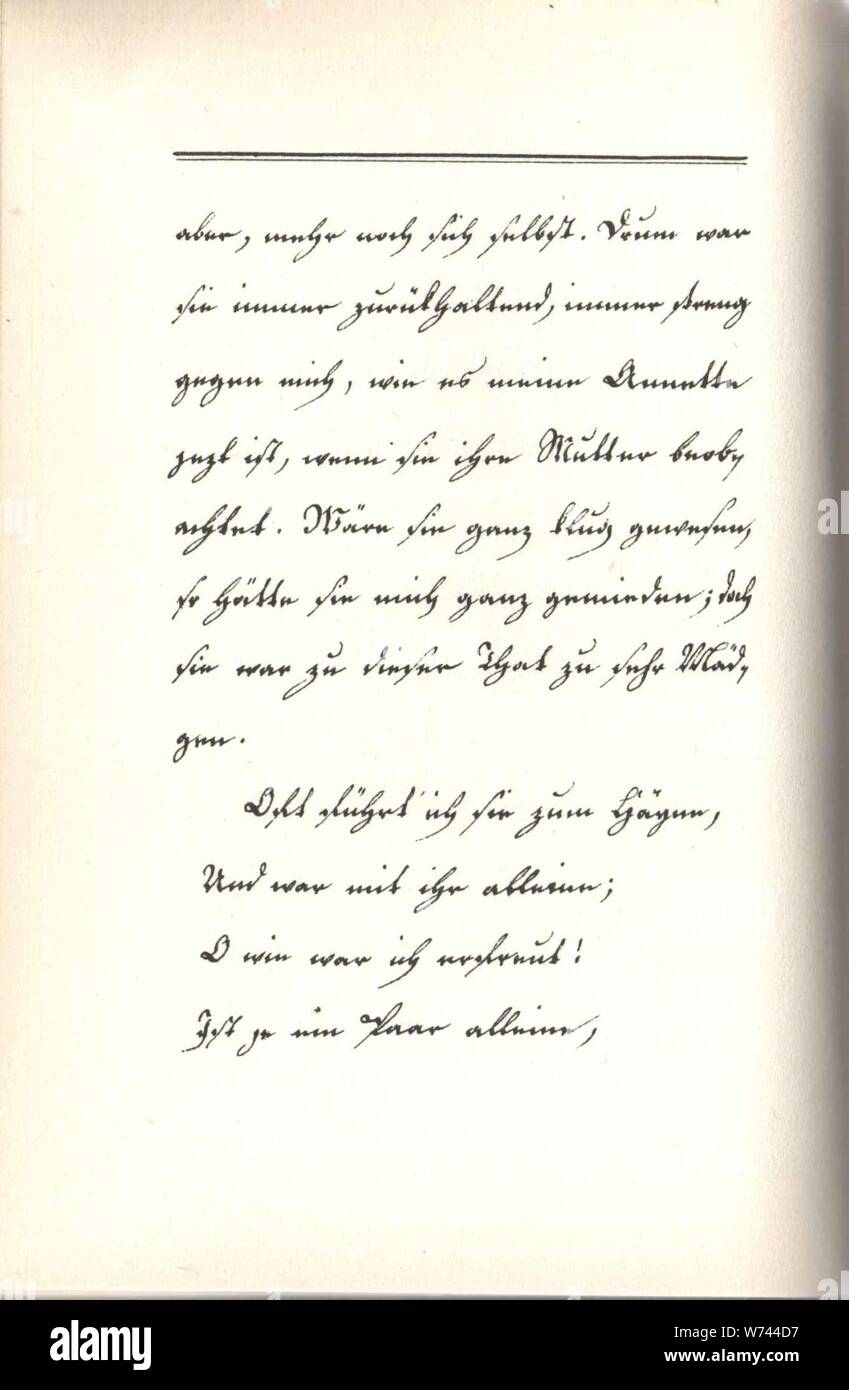 aber, mehr noch sich selbst. Drum war
sie immer zurückhaltend, immer streng
gegen mich, wie es meine Annette
jezt ist, wenn sie ihre Mutter beob-
achtet. Wäre sie ganz klug gewesen,
so hätte sie mich ganz gemieden; doch
sie war zu dieser That zu sehr Mäd-
gen.
Oft führt' ich sie zum Häyne,
Und war mit ihr alleine;
O wie war ich erfreut!
Ist je ein Paar alleine,
alamy
Image ID: W744D7
www.alamy.com